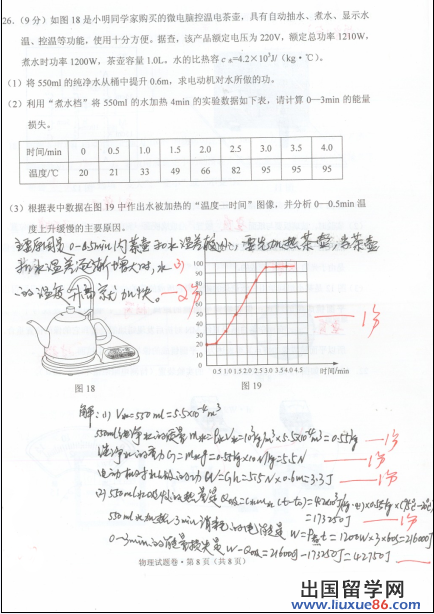 26.(9分)如图18是小明同学家购买的微电脑控温电茶壶，具有自动抽水、煮水、显示水
温、控温等功能，使用十分方便。据查，该产品额定电压为220V，额定总功率1210W，
煮水时功率1200W，茶壶容量1.0L。水的比热容c水=4.2×10³J/（kg·℃）。
（1）将550ml的纯净水从桶中提升0.6m，求电动机对水所做的功。
（2）利用“煮水档”将550ml的水加热4min的实验数据如下表，请计算0—3min的能量
损失。
时间/min 0 0.5 1.0 1.5 2.0 2.5 3.0 3.5 4.0
温度/℃ 20 21 33 49 66 82 95 95 95
（3）根据表中数据在图19中作出水被加热的“温度—时间”图像，并分析0—0.5min温
度上升缓慢的主要原因。
主要原因是0-0.5min内茶壶和水温差较小，要先加热茶壶，当茶壶
和水温差逐渐增大时，水
的温度升高就加快。—2分
100
90
80
70
60
50
40
30
20
10
0
—1分
0.5 1.0 1.5 2.0 2.5 3.0 3.5 4.0 4.5 时间/min
图18 图19
解：(1) V水=550ml=5.5×10⁻⁴m³
550ml纯净水的质量m水=ρ水V水=10³kg/m³×5.5×10⁻⁴m³=0.55kg —1分
纯净水的重力G=m水g=0.55kg×10N/kg=5.5N —1分
电动机对水做的功W=Gh=5.5N×0.6m=3.3J —1分
(2) 550ml水吸收的热量是Q吸=c水m水(t-t₀)=4.2×10³J/(kg·℃)×0.55kg×(95℃-20℃)
=173250J —1分
550ml水加热3min消耗的电能是W=Pt=1200W×3×60s=216000J
0-3min的能量损失是W-Q吸=216000J-173250J=42750J
物理试题卷·第8页（共8页）
出国留学网
www.liuxue86.com